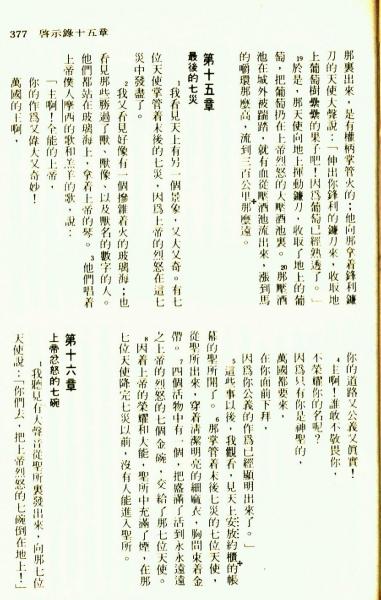 377　啓示錄十五章
那裏出來，是有權柄掌管火的；他向那拿着鋒利鐮
刀的天使大聲說：「伸出你鋒利的鐮刀來，收取地
上葡萄樹纍纍的果子吧！因爲葡萄已經熟透了。」
19於是，那天使向地上揮動鐮刀，收取了地上的葡
萄，把葡萄扔在上帝烈怒的大壓酒池裏。20那壓酒
池在城外被踹踏，就有血從壓酒池流出來，漲到馬
的嚼環那麼高，流到三百公里那麼遠。
第十五章
最後的七災
1我看見天上有另一個景象，又大又奇。有七
位天使掌管着末後的七災，因爲上帝的烈怒在這七
災中發盡了。
2我又看見好像有一個攙雜着火的玻璃海；也
看見那些勝過了獸、獸像、以及獸名的數字的人。
他們都站在玻璃海上，拿着上帝的琴。3他們唱着
上帝僕人摩西的歌和羔羊的歌，說：
「主啊！全能的上帝，
你的作爲又偉大又奇妙！
萬國的王啊，
你的道路又公義又眞實！
4主啊！誰敢不敬畏你，
不榮耀你的名呢？
因爲只有你是神聖的，
萬國都要來，
在你面前下拜，
因爲你公義的作爲已經顯明出來了。」
5這些事以後，我觀看，見天上安放約櫃的帳
幕的聖所開了。6那掌管着末後七災的七位天使，
從聖所出來，穿着清潔明亮的細麻衣，胸間束着金
帶。7四個活物中有一個，把盛滿了活到永永遠遠
之上帝的烈怒的七個金碗，交給了那七位天使。
8因着上帝的榮耀和大能，聖所中充滿了煙，在那
七位天使降完七災以前，沒有人能進入聖所。
第十六章
上帝忿怒的七碗
1我聽見有大聲音從聖所裏發出來，向那七位
天使說：「你們去，把上帝烈怒的七碗倒在地上！」